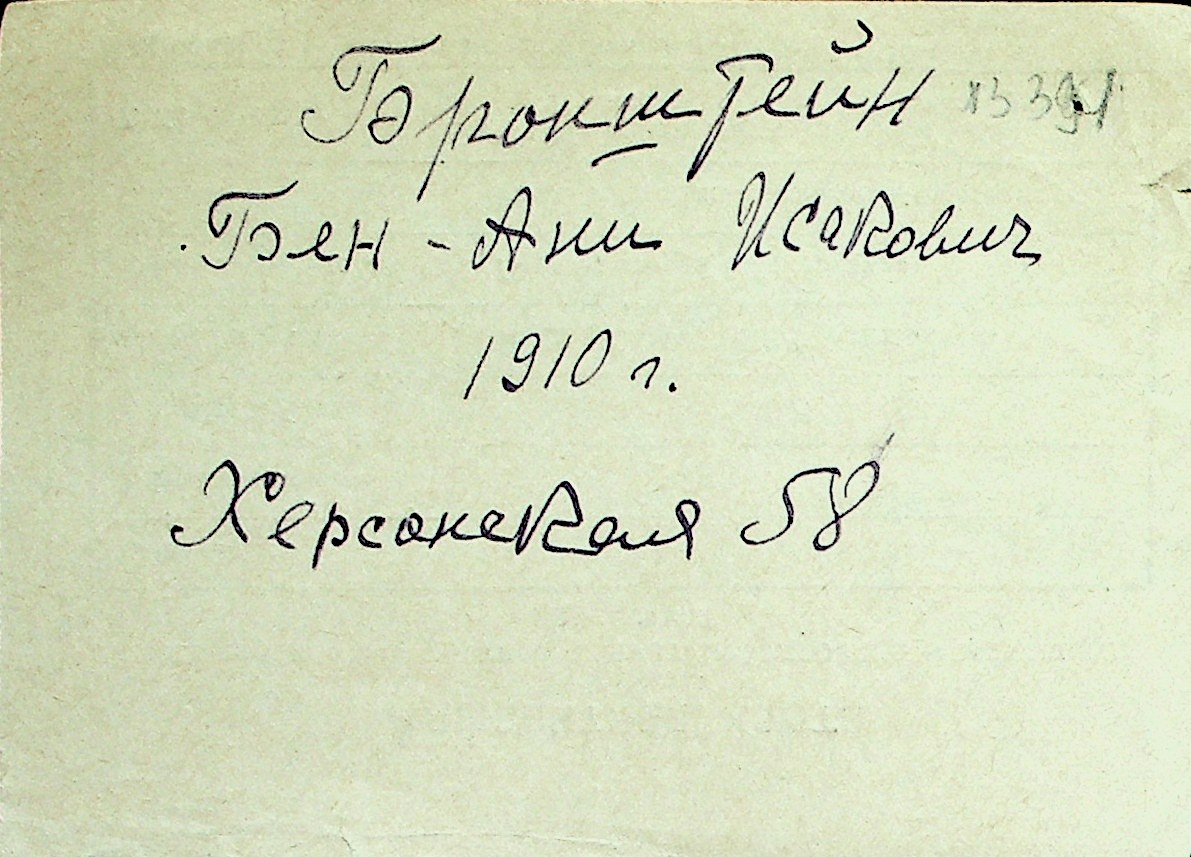 Бронштейн
Бен-Ани Исакович
1910 г.
Херсонская 58